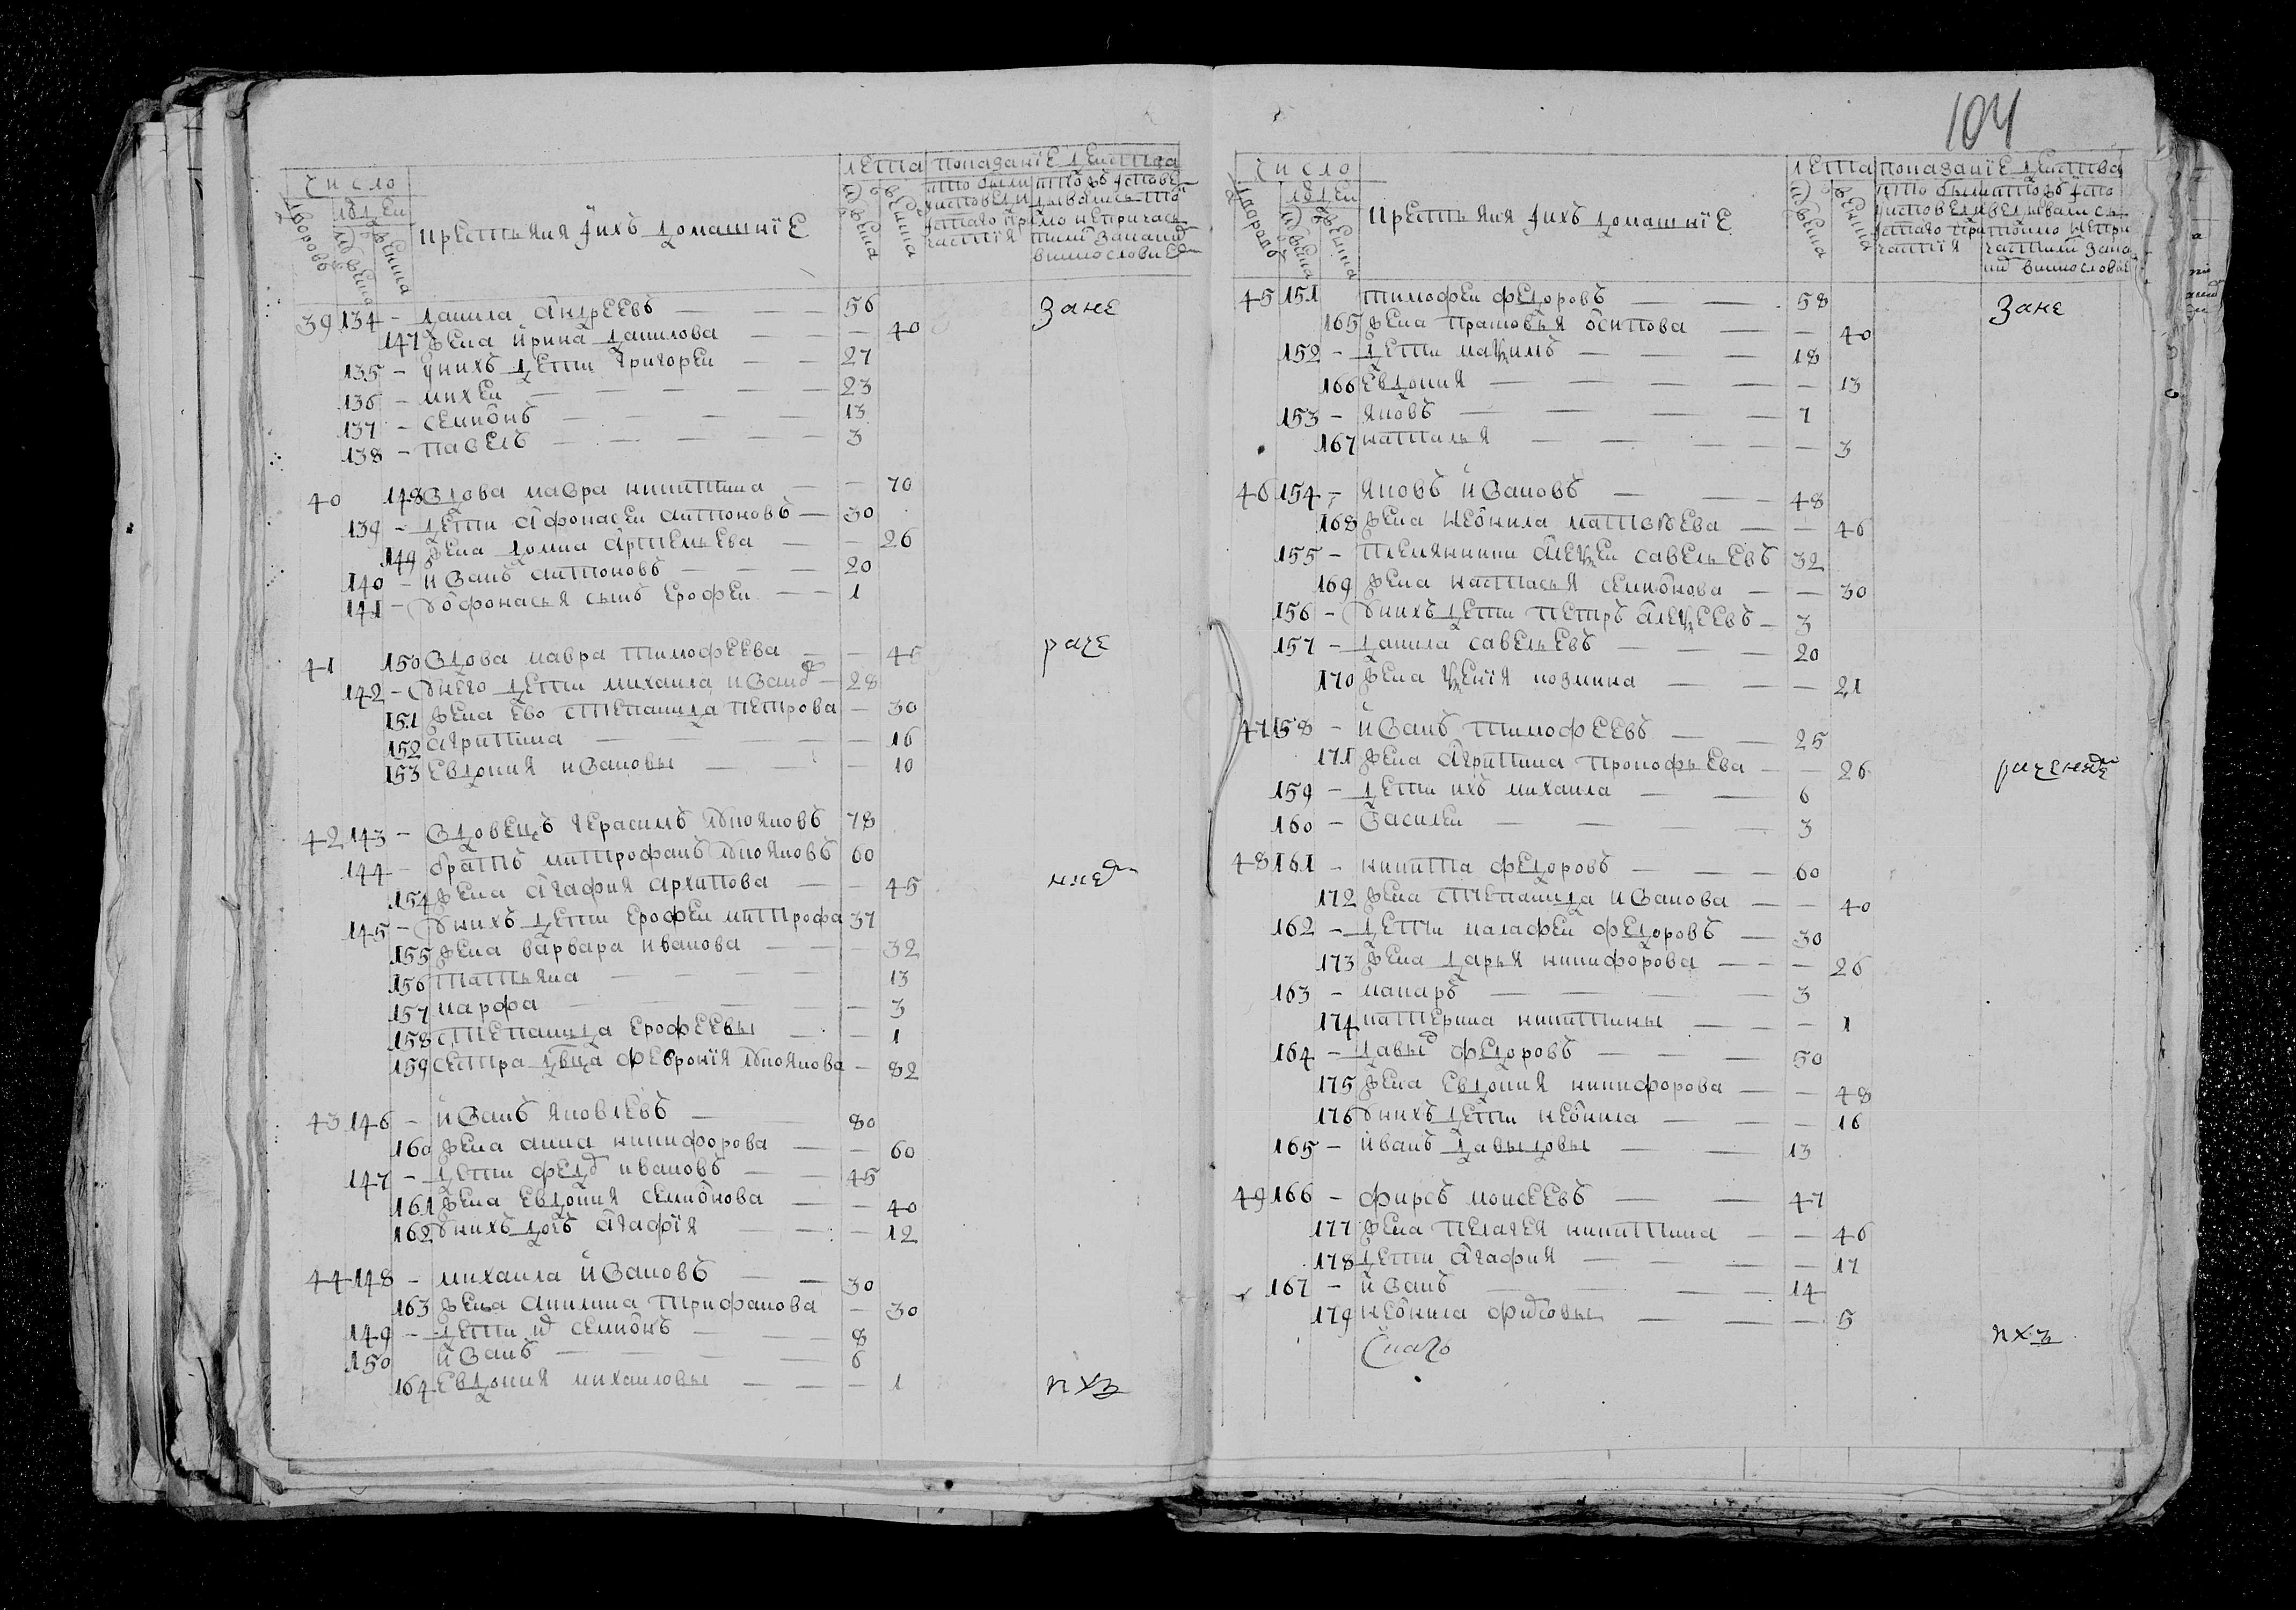 число
людей
дворовъ
мужеска
женска
крестьяня и ихъ домашніе
лета
мужеска
женска
показаніе действа
39 134 – данила андреевъ — — 56 зане
147 жена ирина данилова — — 40
135 – у нихъ дети григореи — — 27
136 – михеи — — 23
137 – семионъ — — 13
138 – павелъ — — 3
40 148 вдова мавра никитина — — 70
139 – дети афонасеи антоновъ — 30
149 жена домна артемьева — — 26
140 – иванъ антоновъ — — 20
141 – у офонасья сынъ ерофеи — — 1
41 150 вдова мавра тимофеева — — 46 раче
142 – у него дети михаила ивано — 28
151 жена ево степанида петрова — 30
152 агрипина — — 16
153 евдокия ивановы — — 10
42 143 – вдовецъ герасимъ лукояновъ 78
144 – братъ митрофанъ лукояновъ 60
154 жена агафия архипова — — 45 ние
145 – у нихъ дети ерофеи митрофа 37
155 жена варвара иванова — — 32
156 татьяна — — 13
157 марфа — — 3
158 степанида ерофеевы — — 1
159 сестра двца феврония лукоянова — 82
43 146 – иванъ яковлевъ — 80
160 жена анна никифорова — — 60
147 – дети федо ивановъ — — 45
161 жена евдокия семионова — — 40
162 у нихъ дочь агафія — — 12
44 148 – михаила ивановъ — — 30
163 жена акилина трифанова — 30
149 – дети их семионъ — — 8
150 иванъ — — 6
164 евдокия михаиловы — — 1 пхз
104
число
людей
дворовъ
мужеска
женска
крестьяня и ихъ домашніе
лета
мужеска
женска
показаніе действа
45 151 тимофеи федоровъ — — 58 зане
165 жена прасковья осипова — — 40
152 – дети маѯимъ — — 18
166 евдокия — — 13
153 – яковъ — — 7
167 наталья — — 3
46 154 – яковъ ивановъ — — 48
168 жена неонила матвѣева — — 46
155 – племянники алеѯеи савельевъ 32
169 жена настасья семионова — — 30
156 – у нихъ дети петръ алеѯеевъ — 3
157 – данила савельевъ — — 20
170 жена ѯения козмина — — 21
47 158 – иванъ тимофеевъ — — 25
171 жена агрипина прокофьева — — 26
159 – дети ихъ михаила — — 6
160 – василеи — — 3
48 161 – никита федоровъ — — 60
172 жена степанида иванова — — 40
162 – дети малафеи федоровъ — 30
173 жена дарья никифорова — — 26
163 – макаръ — — 3
174 катерина никитины — — 1
164 – давыд федоровъ — — 50
175 жена евдокия никифорова — — 48
176 у нихъ дети неонила — — 16
165 – иванъ давыдовы — — 13
49 166 – фирсъ моисеевъ — — 47
177 жена пелагея никитина — — 46
178 дети агафия — — 17
167 – иванъ — — 14
179 неонила фирсовы — — 5
пхз